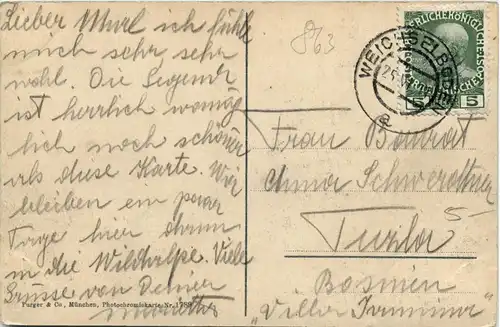 Lieber Murl ich fühle
mich sehr sehr
wohl. Die Gegend
ist herrlich womög
lich noch schöner
als diese Karte. Wir
bleiben ein paar
Tage hier dann
in die Wildalpe. Viele
Grüsse von Deiner
Purger & Co., München, Photochromiekarte Nr.
863
WEICHSELBODEN
5 5
Frau Baurat
Anna
Tuzla
5-
Bosnien
"Villa